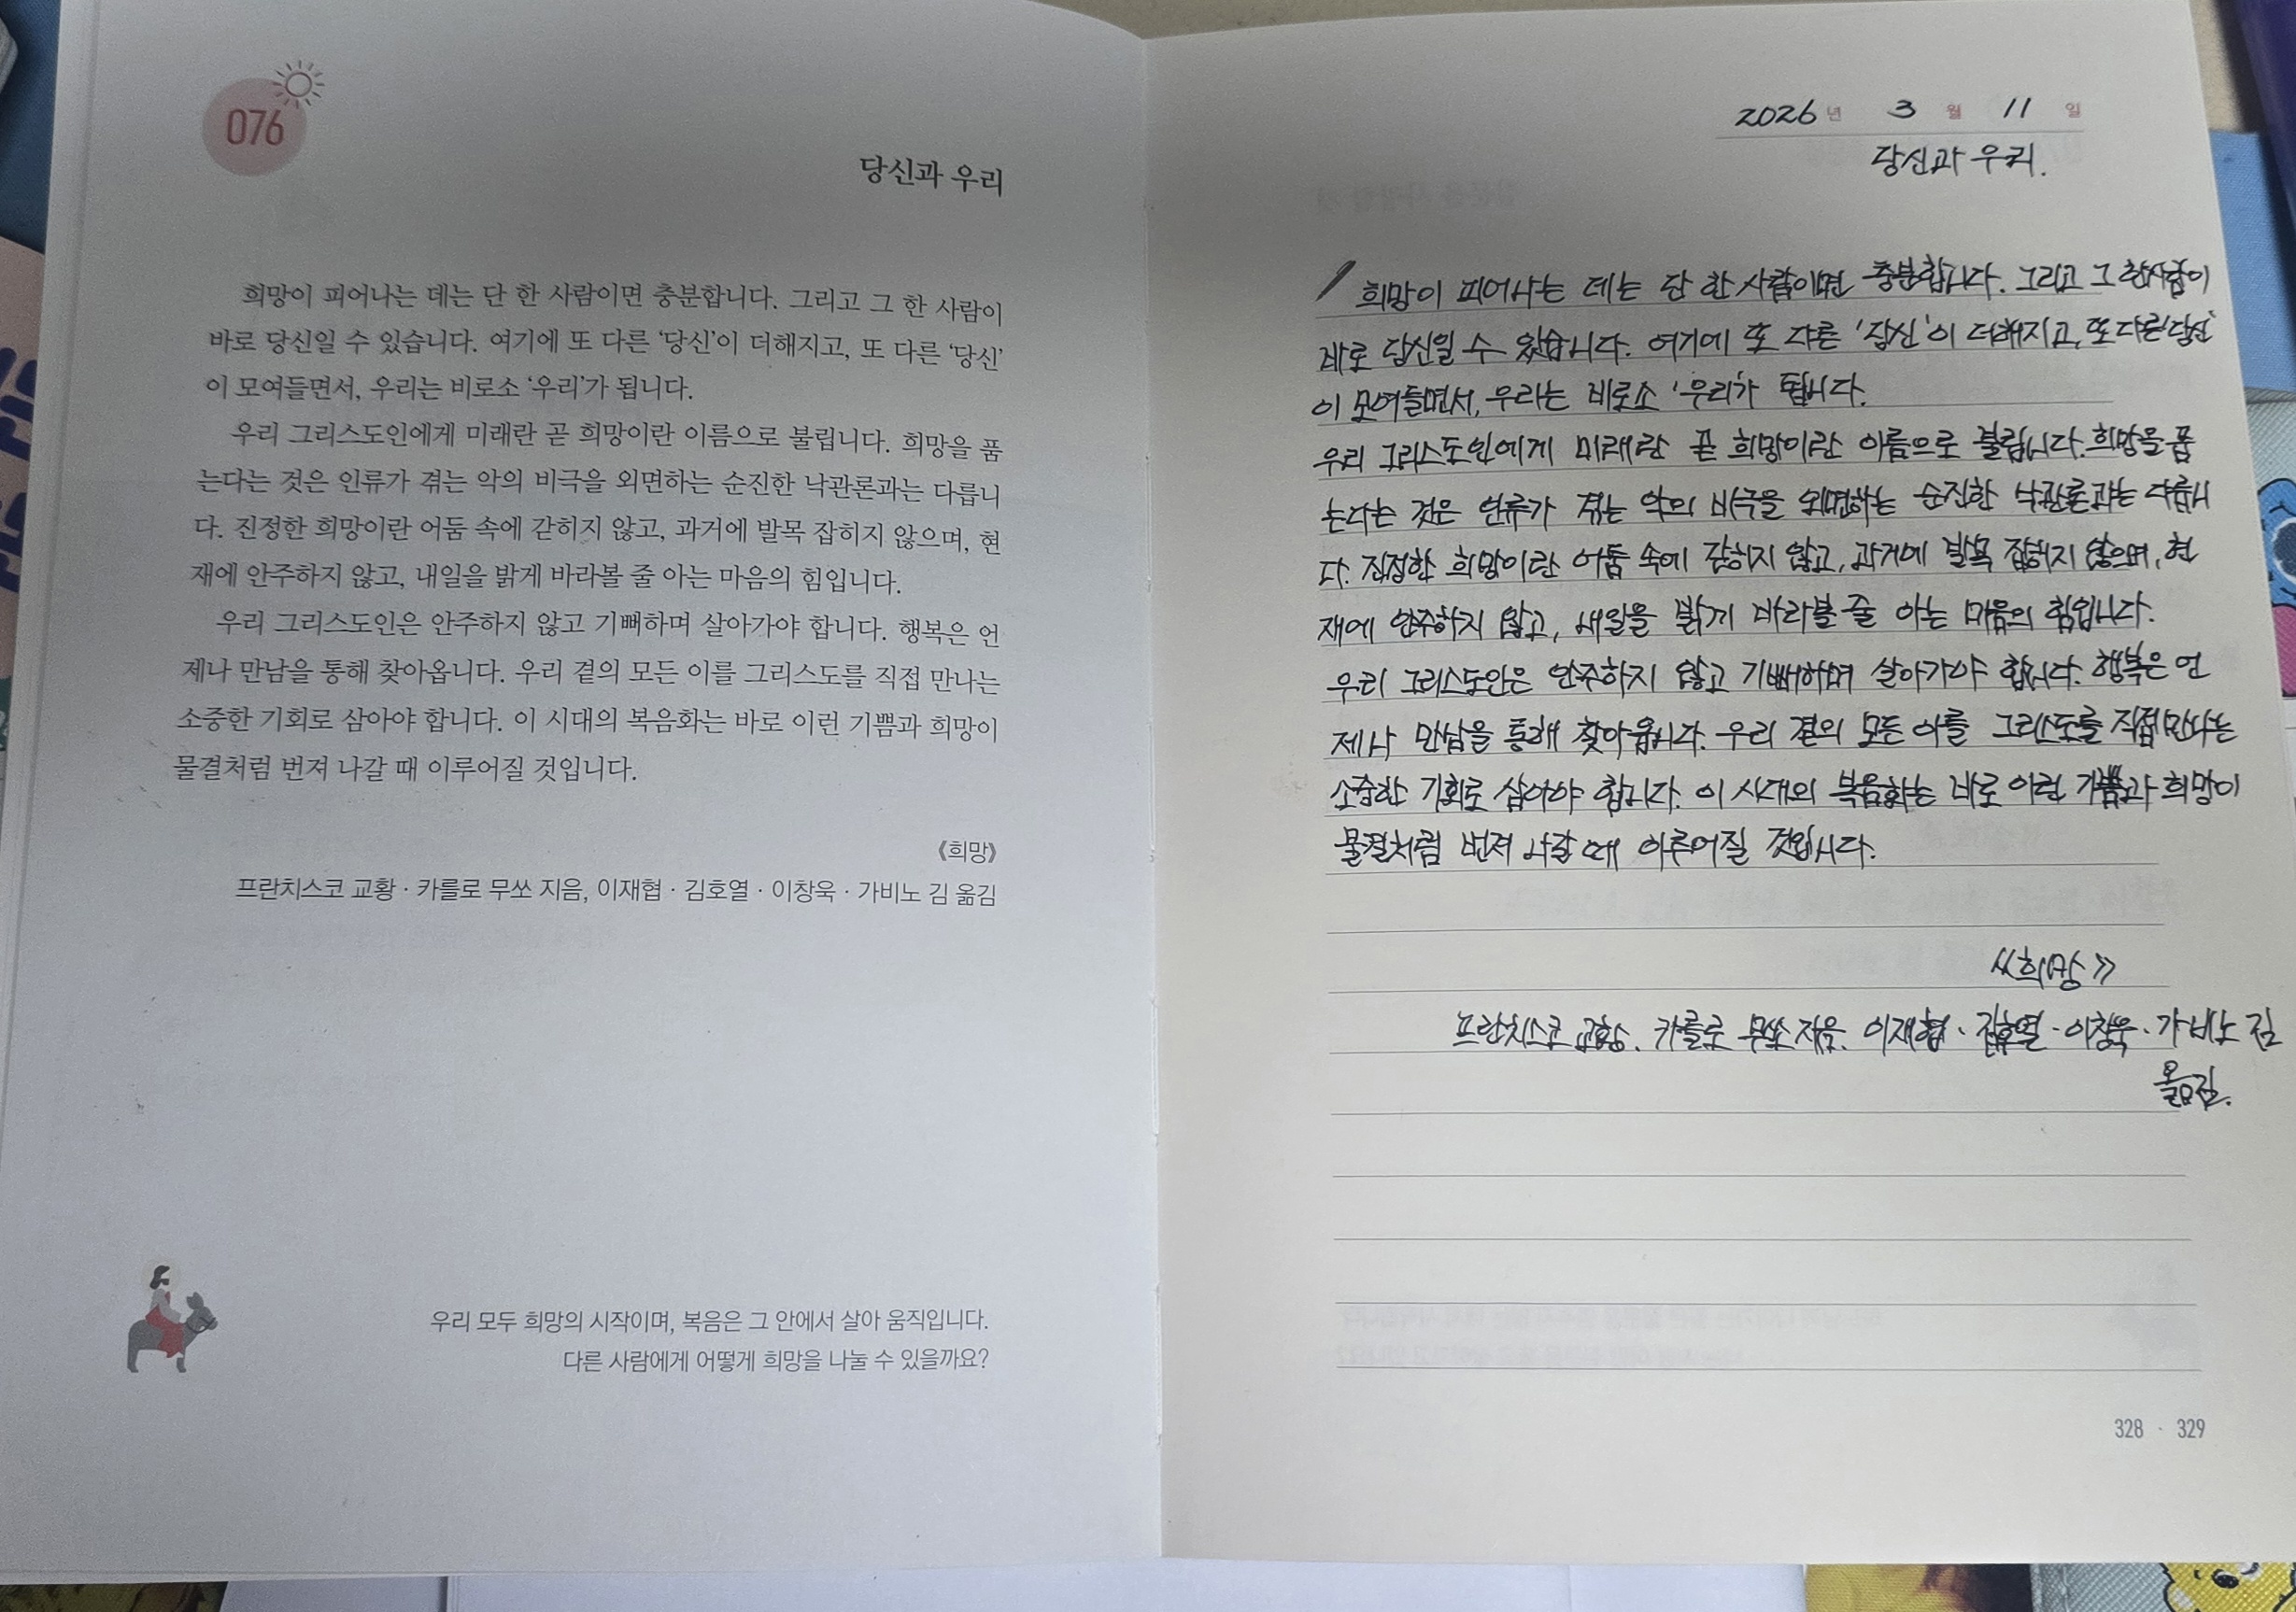 076
당신과 우리
희망이 피어나는 데는 단 한 사람이면 충분합니다. 그리고 그 한 사람이
바로 당신일 수 있습니다. 여기에 또 다른 ‘당신’이 더해지고, 또 다른 ‘당신’
이 모여들면서, 우리는 비로소 ‘우리’가 됩니다.
우리 그리스도인에게 미래란 곧 희망이란 이름으로 불립니다. 희망을 품
는다는 것은 인류가 겪는 악의 비극을 외면하는 순진한 낙관론과는 다릅니
다. 진정한 희망이란 어둠 속에 갇히지 않고, 과거에 발목 잡히지 않으며, 현
재에 안주하지 않고, 내일을 밝게 바라볼 줄 아는 마음의 힘입니다.
우리 그리스도인은 안주하지 않고 기뻐하며 살아가야 합니다. 행복은 언
제나 만남을 통해 찾아옵니다. 우리 곁의 모든 이를 그리스도를 직접 만나는
소중한 기회로 삼아야 합니다. 이 시대의 복음화는 바로 이런 기쁨과 희망이
물결처럼 번져 나갈 때 이루어질 것입니다.
《희망》
프란치스코 교황 · 카를로 무쏘 지음, 이재협 · 김호열 · 이창욱 · 가비노 김 옮김
우리 모두 희망의 시작이며, 복음은 그 안에서 살아 움직입니다.
다른 사람에게 어떻게 희망을 나눌 수 있을까요?
2026년 3월 11일
당신과 우리.
희망이 피어나는 데는 단 한 사람이면 충분합니다. 그리고 그 한사람이
바로 당신일 수 있습니다. 여기에 또 다른 '당신'이 더해지고, 또 다른 '당신'
이 모여들면서, 우리는 비로소 '우리'가 됩니다.
우리 그리스도인에게 미래란 곧 희망이란 이름으로 불립니다. 희망을 품
는다는 것은 인류가 겪는 악의 비극을 외면하는 순진한 낙관론과는 다릅니
다. 진정한 희망이란 어둠 속에 갇히지 않고, 과거에 발목 잡히지 않으며, 현
재에 안주하지 않고, 내일을 밝게 바라볼 줄 아는 마음의 힘입니다.
우리 그리스도인은 안주하지 않고 기뻐하며 살아가야 합니다. 행복은 언
제나 만남을 통해 찾아옵니다. 우리 곁의 모든 이를 그리스도를 직접 만나는
소중한 기회로 삼아야 합니다. 이 시대의 복음화는 바로 이런 기쁨과 희망이
물결처럼 번져 나갈 때 이루어질 것입니다.
《희망》
프란치스코 교황. 카를로 무쏘 지음. 이재협 · 김호열 · 이창욱 · 가비노 김
옮김.
328 · 329